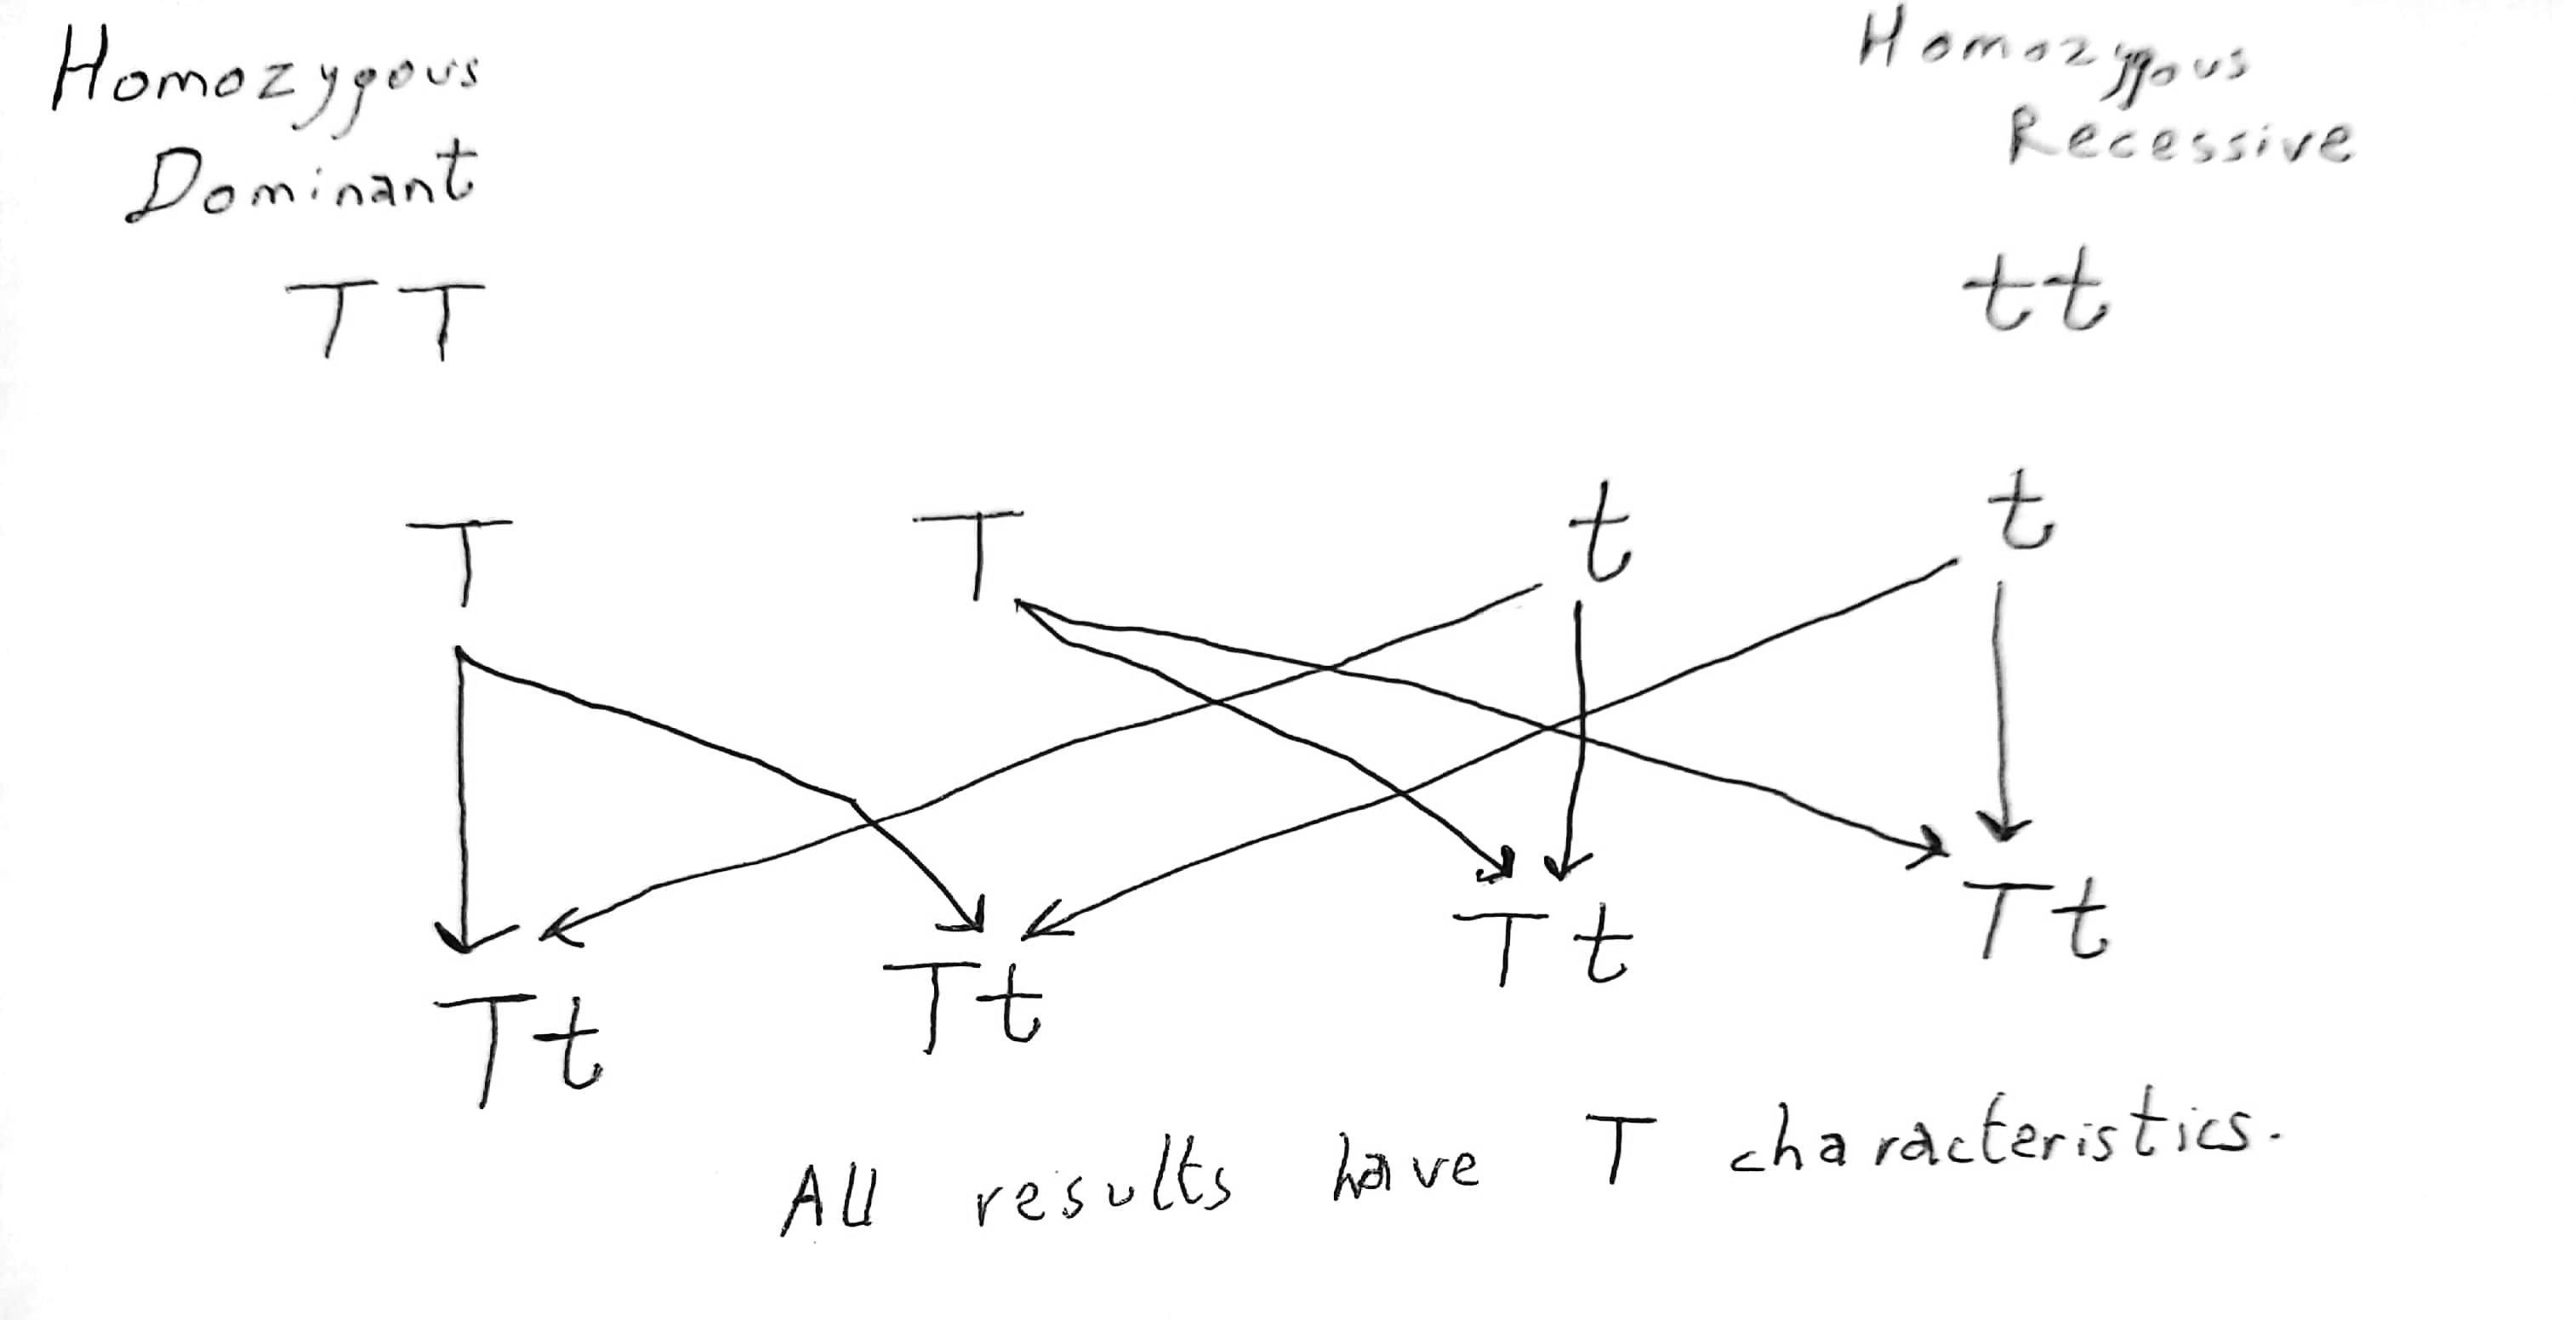 Homozygous
Dominant
TT
Homozygous
Recessive
tt
T T t t
Tt Tt Tt Tt
All results have T characteristics.